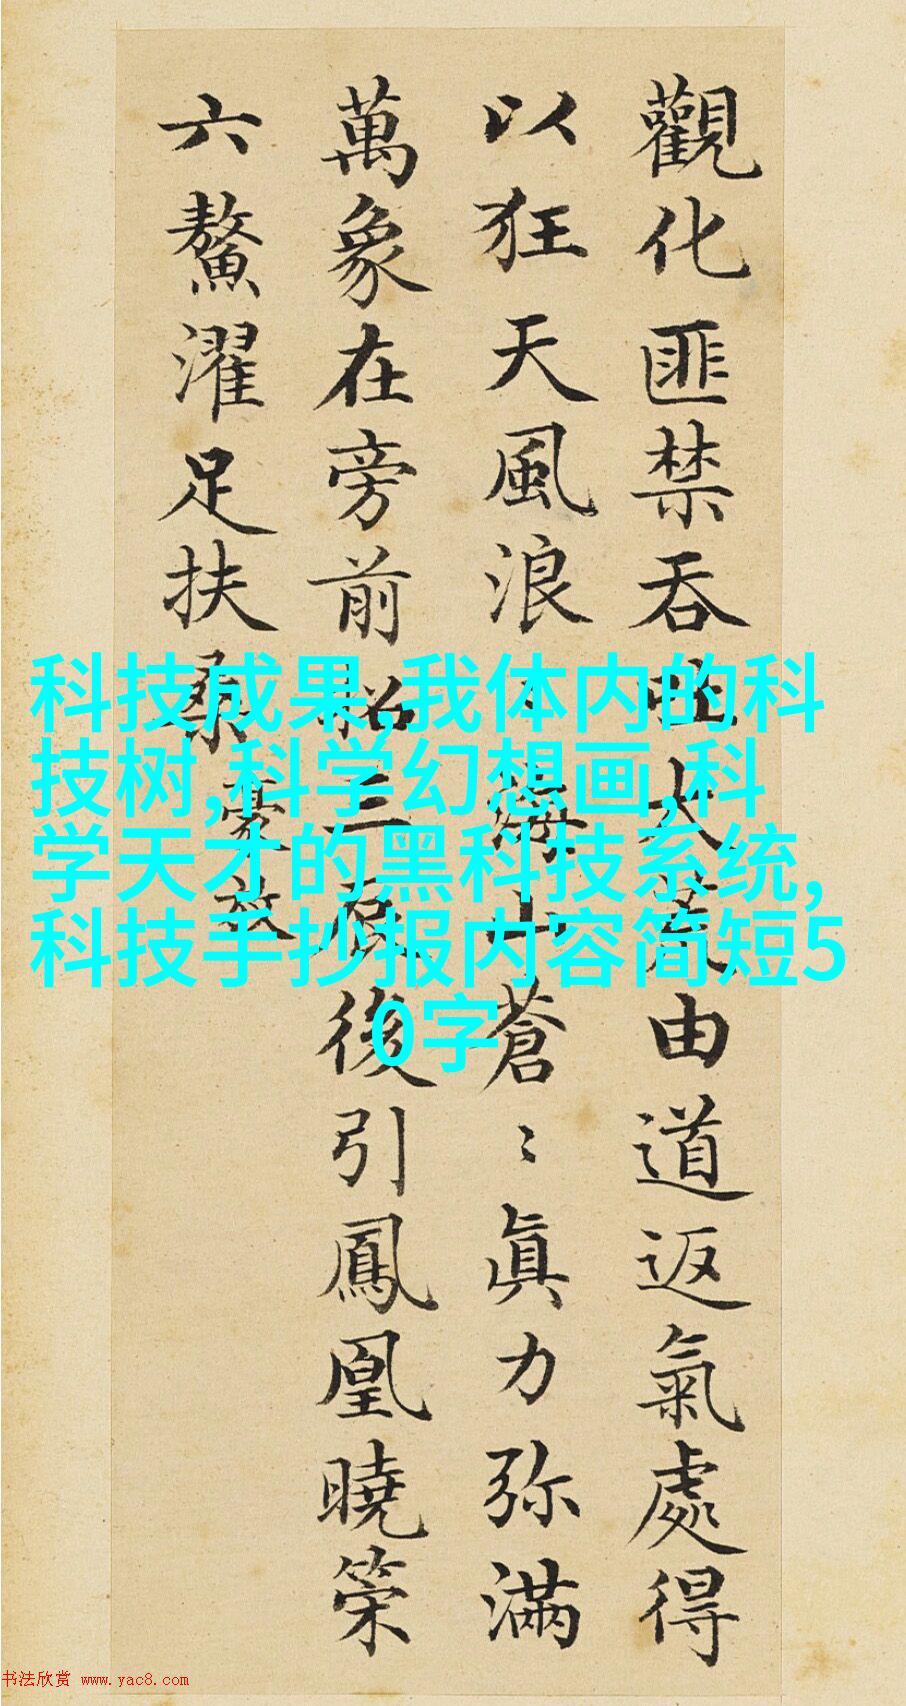 觀化匪禁吞吐大荒由道返氣處得
以狂天風浪〻海山蒼〻真力弥滿
萬象在旁前招三辰後引鳳凰曉策
六鰲濯足扶桑
豪放
科技成果,我体内的科
技树,科学幻想画,科
学天才的黑科技系统,
科技手抄报内容简短5
0字
书法欣赏 www.yac8.com